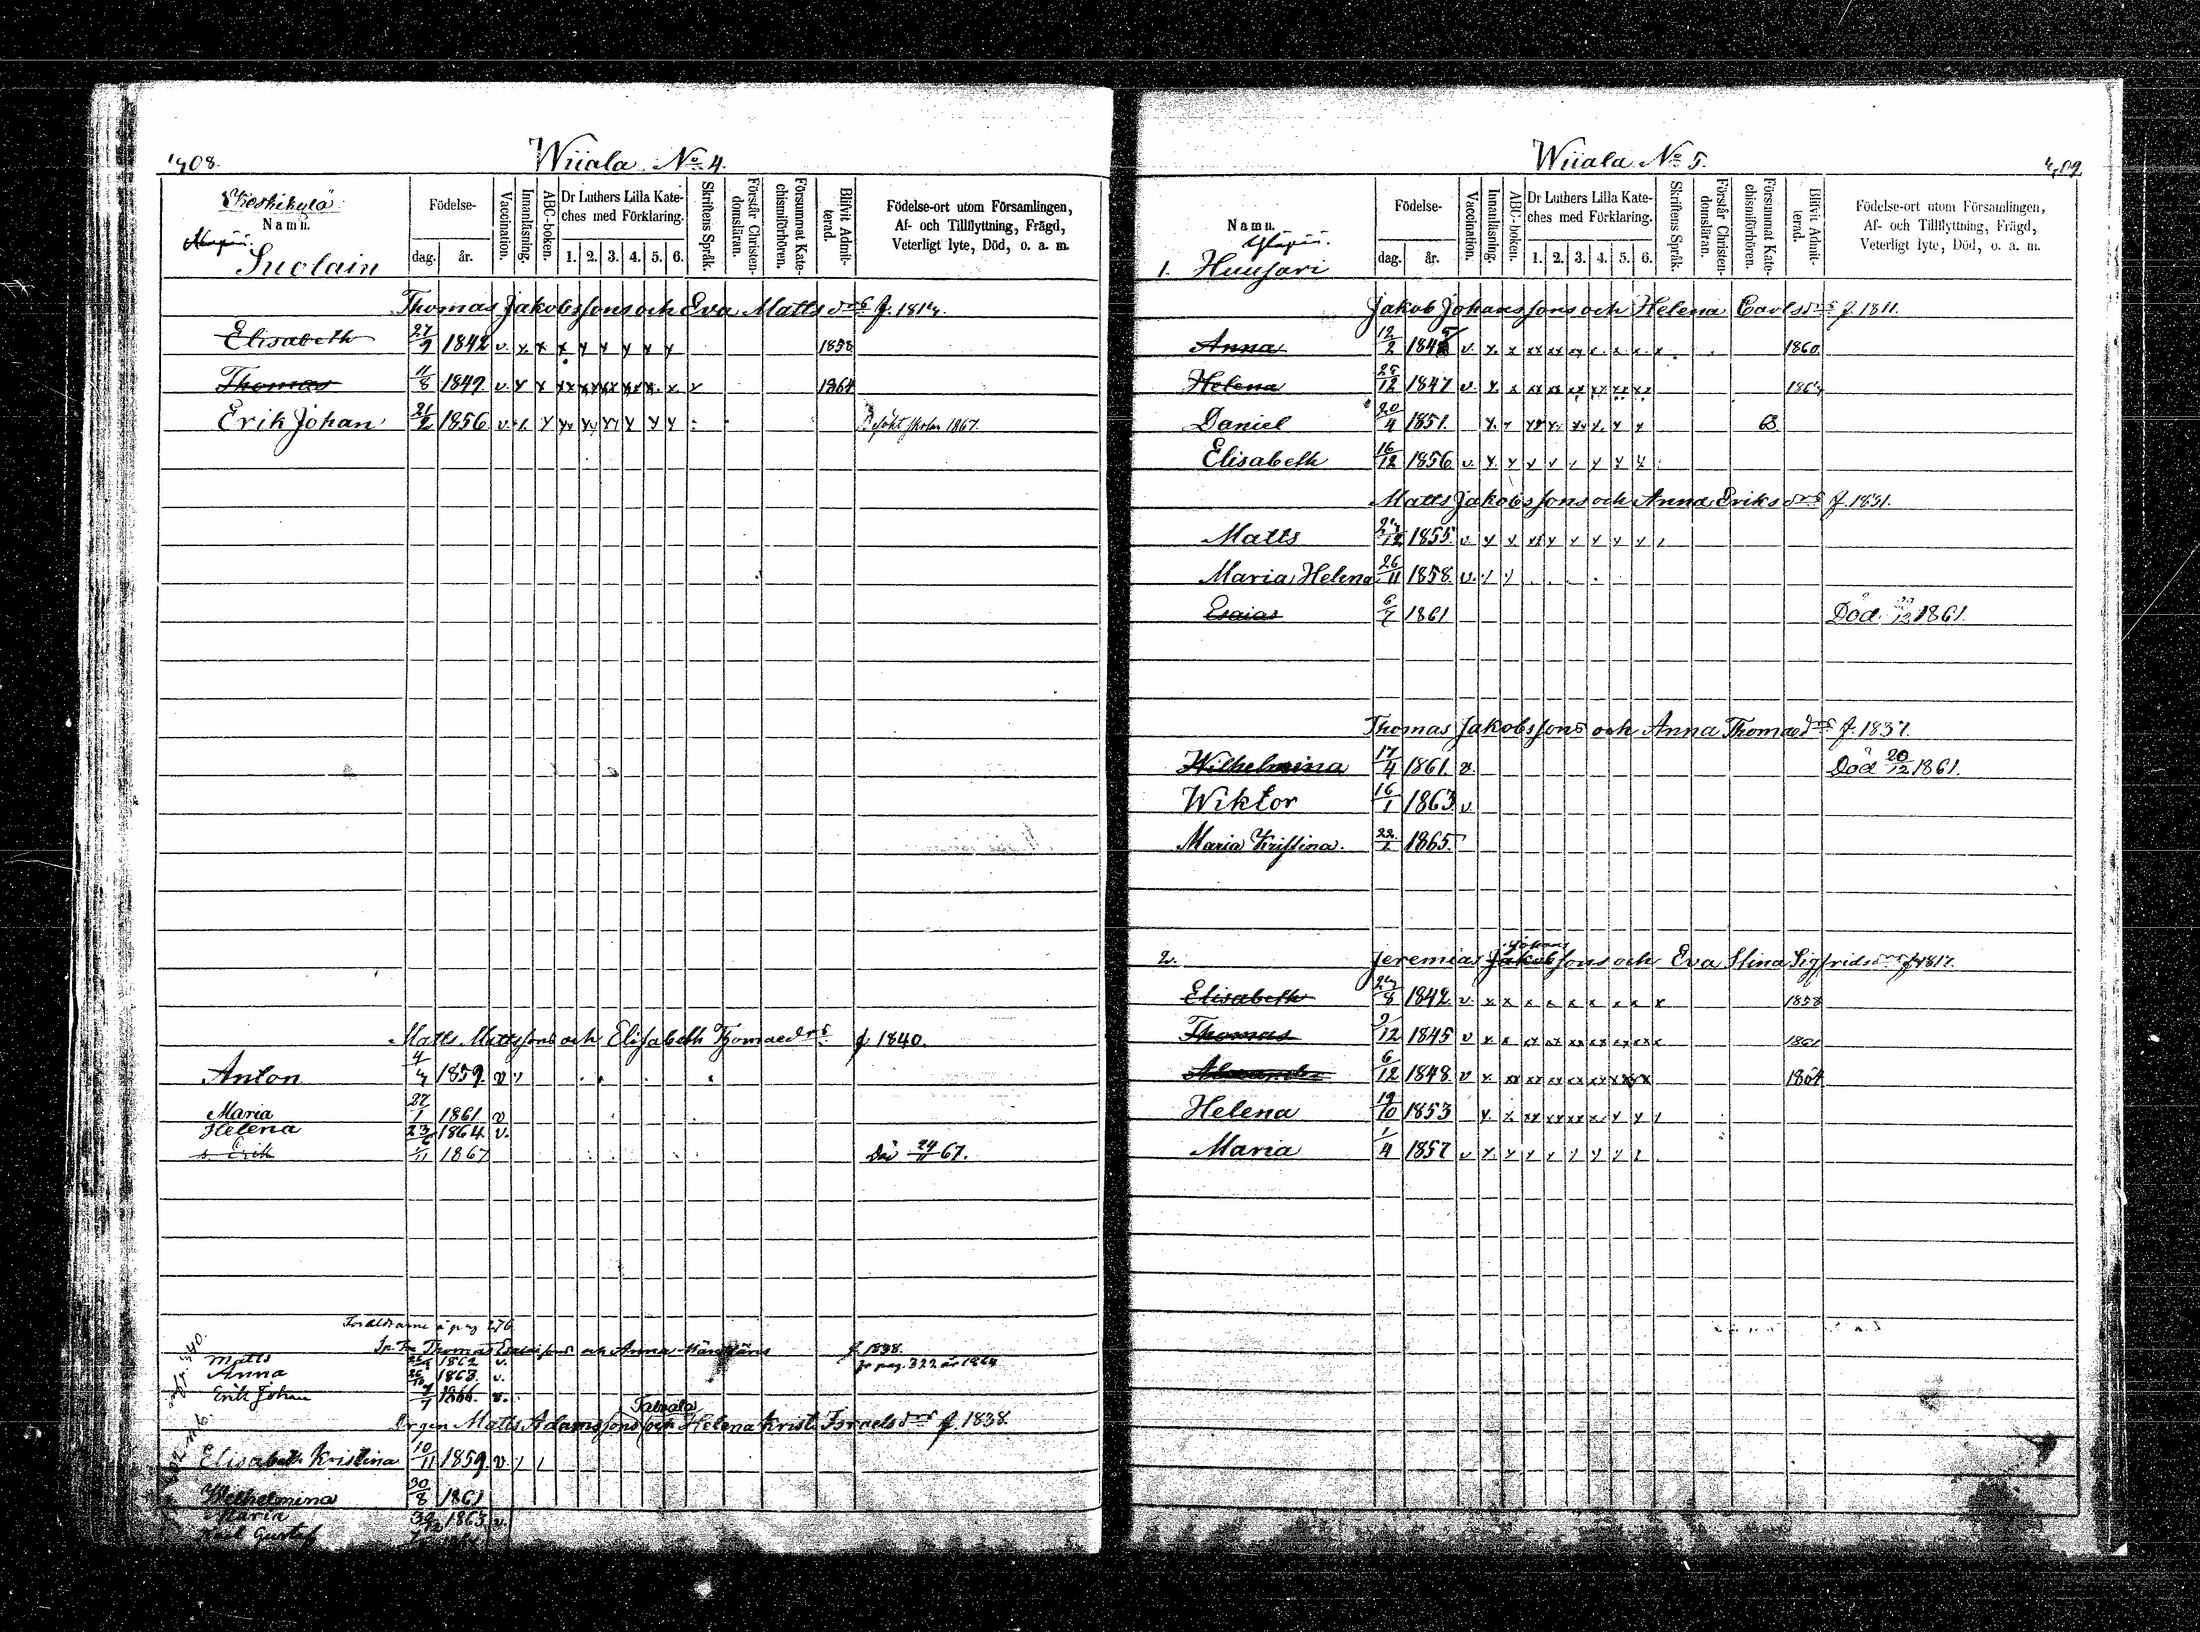 408.
Wiiala No 4.
Keskikylä
Namn.
Suolain
Födelse-
dag.
år.
Vaccination.
Innanläsning.
ABC-boken.
Dr Luthers Lilla Kate-
ches med Förklaring.
1. 2. 3. 4. 5. 6.
Skriftens Språk.
Förstår Christen-
domsläran.
Försummat Kate-
chismiförhören.
Blifvit Admit-
terad.
Födelse-ort utom Församlingen,
Af- och Tillflyttning, Frägd,
Veterligt lyte, Död, o. a. m.
Thomas Jakobssons och Eva Mattsdrs f. 1814.
Elisabeth 27/9 1842 v. x x x x x x x x 1858
Thomas 11/8 1847. v. x x xx xx xx xx xx x. x 1864
Erik Johan 21/2 1856 v. x. x xx xx xx x x x skolan 1867.
Matts Mattssons och Elisabeth Thomaedrs f 1840.
Anton 4/4 1859. v
Maria 27/1 1861 v
Helena 23/6 1864 v.
s. Erik 1/11 1867 Död 24/11 67.
Föräldrarne å pag 276
Thomas och Anna f. 1838.
Matts 1862 v. fr pag. 322 år 1864
Anna 1863. v.
Erik Johan 1866. v.
Matts Adamssons och Helena Krist. Israelsdrs f. 1838.
Elisabeth Kristina 10/11 1859. v. / /
Wilhelmina 30/8 1861
Maria 1863 v.
Karl Gustaf
Wiiala No 5.
409
Namn.
1. Huusari
Födelse-
dag.
år.
Vaccination.
Innanläsning.
ABC-boken.
Dr Luthers Lilla Kate-
ches med Förklaring.
1. 2. 3. 4. 5. 6.
Skriftens Språk.
Förstår Christen-
domsläran.
Försummat Kate-
chismiförhören.
Blifvit Admit-
terad.
Födelse-ort utom Församlingen,
Af- och Tillflyttning, Frägd,
Veterligt lyte, Död, o. a. m.
Jakob Johanssons och Helena Carlsdrs f. 1811.
Anna 12/2 v. x. x xx xx xx x. x. x. x. x 1860.
Helena 25/12 1847 v. x. x xx xx xx xx xx xx 1864
Daniel 20/4 1851. x. x xx xx xx x. x x 63.
Elisabeth 16/12 1856 v. x. x x x x x x x
Matts Jakobssons och Anna Eriksdrs f. 1831.
Matts 24/12 1855. v. x x xx x x x x x /
Maria Helena 26/11 1858. v. / /
Esaias 6/7 1861 Död 1861.
Thomas Jakobssons och Anna Thomaedrs f. 1837.
Wilhelmina 17/4 1861. v. Död 20/12 1861.
Wiktor 16/1 1863 v
Maria Kristina. 22/2 1865.
Johans
2. Jeremias Jakobssons och Eva Stina Sigfridsdrs f 1817.
Elisabeth 24/8 1842 v. x x x x x x x x x 1858
Thomas 9/12 1845 v x x xx xx xx xx xx xx x 1861
Alexander 6/12 1848. v x. xx xx xx xx xx xx xx 1864
Helena 19/10 1853 x. x xx xx xx x. x x /
Maria 1/4 1857 v x. x x x x x x x